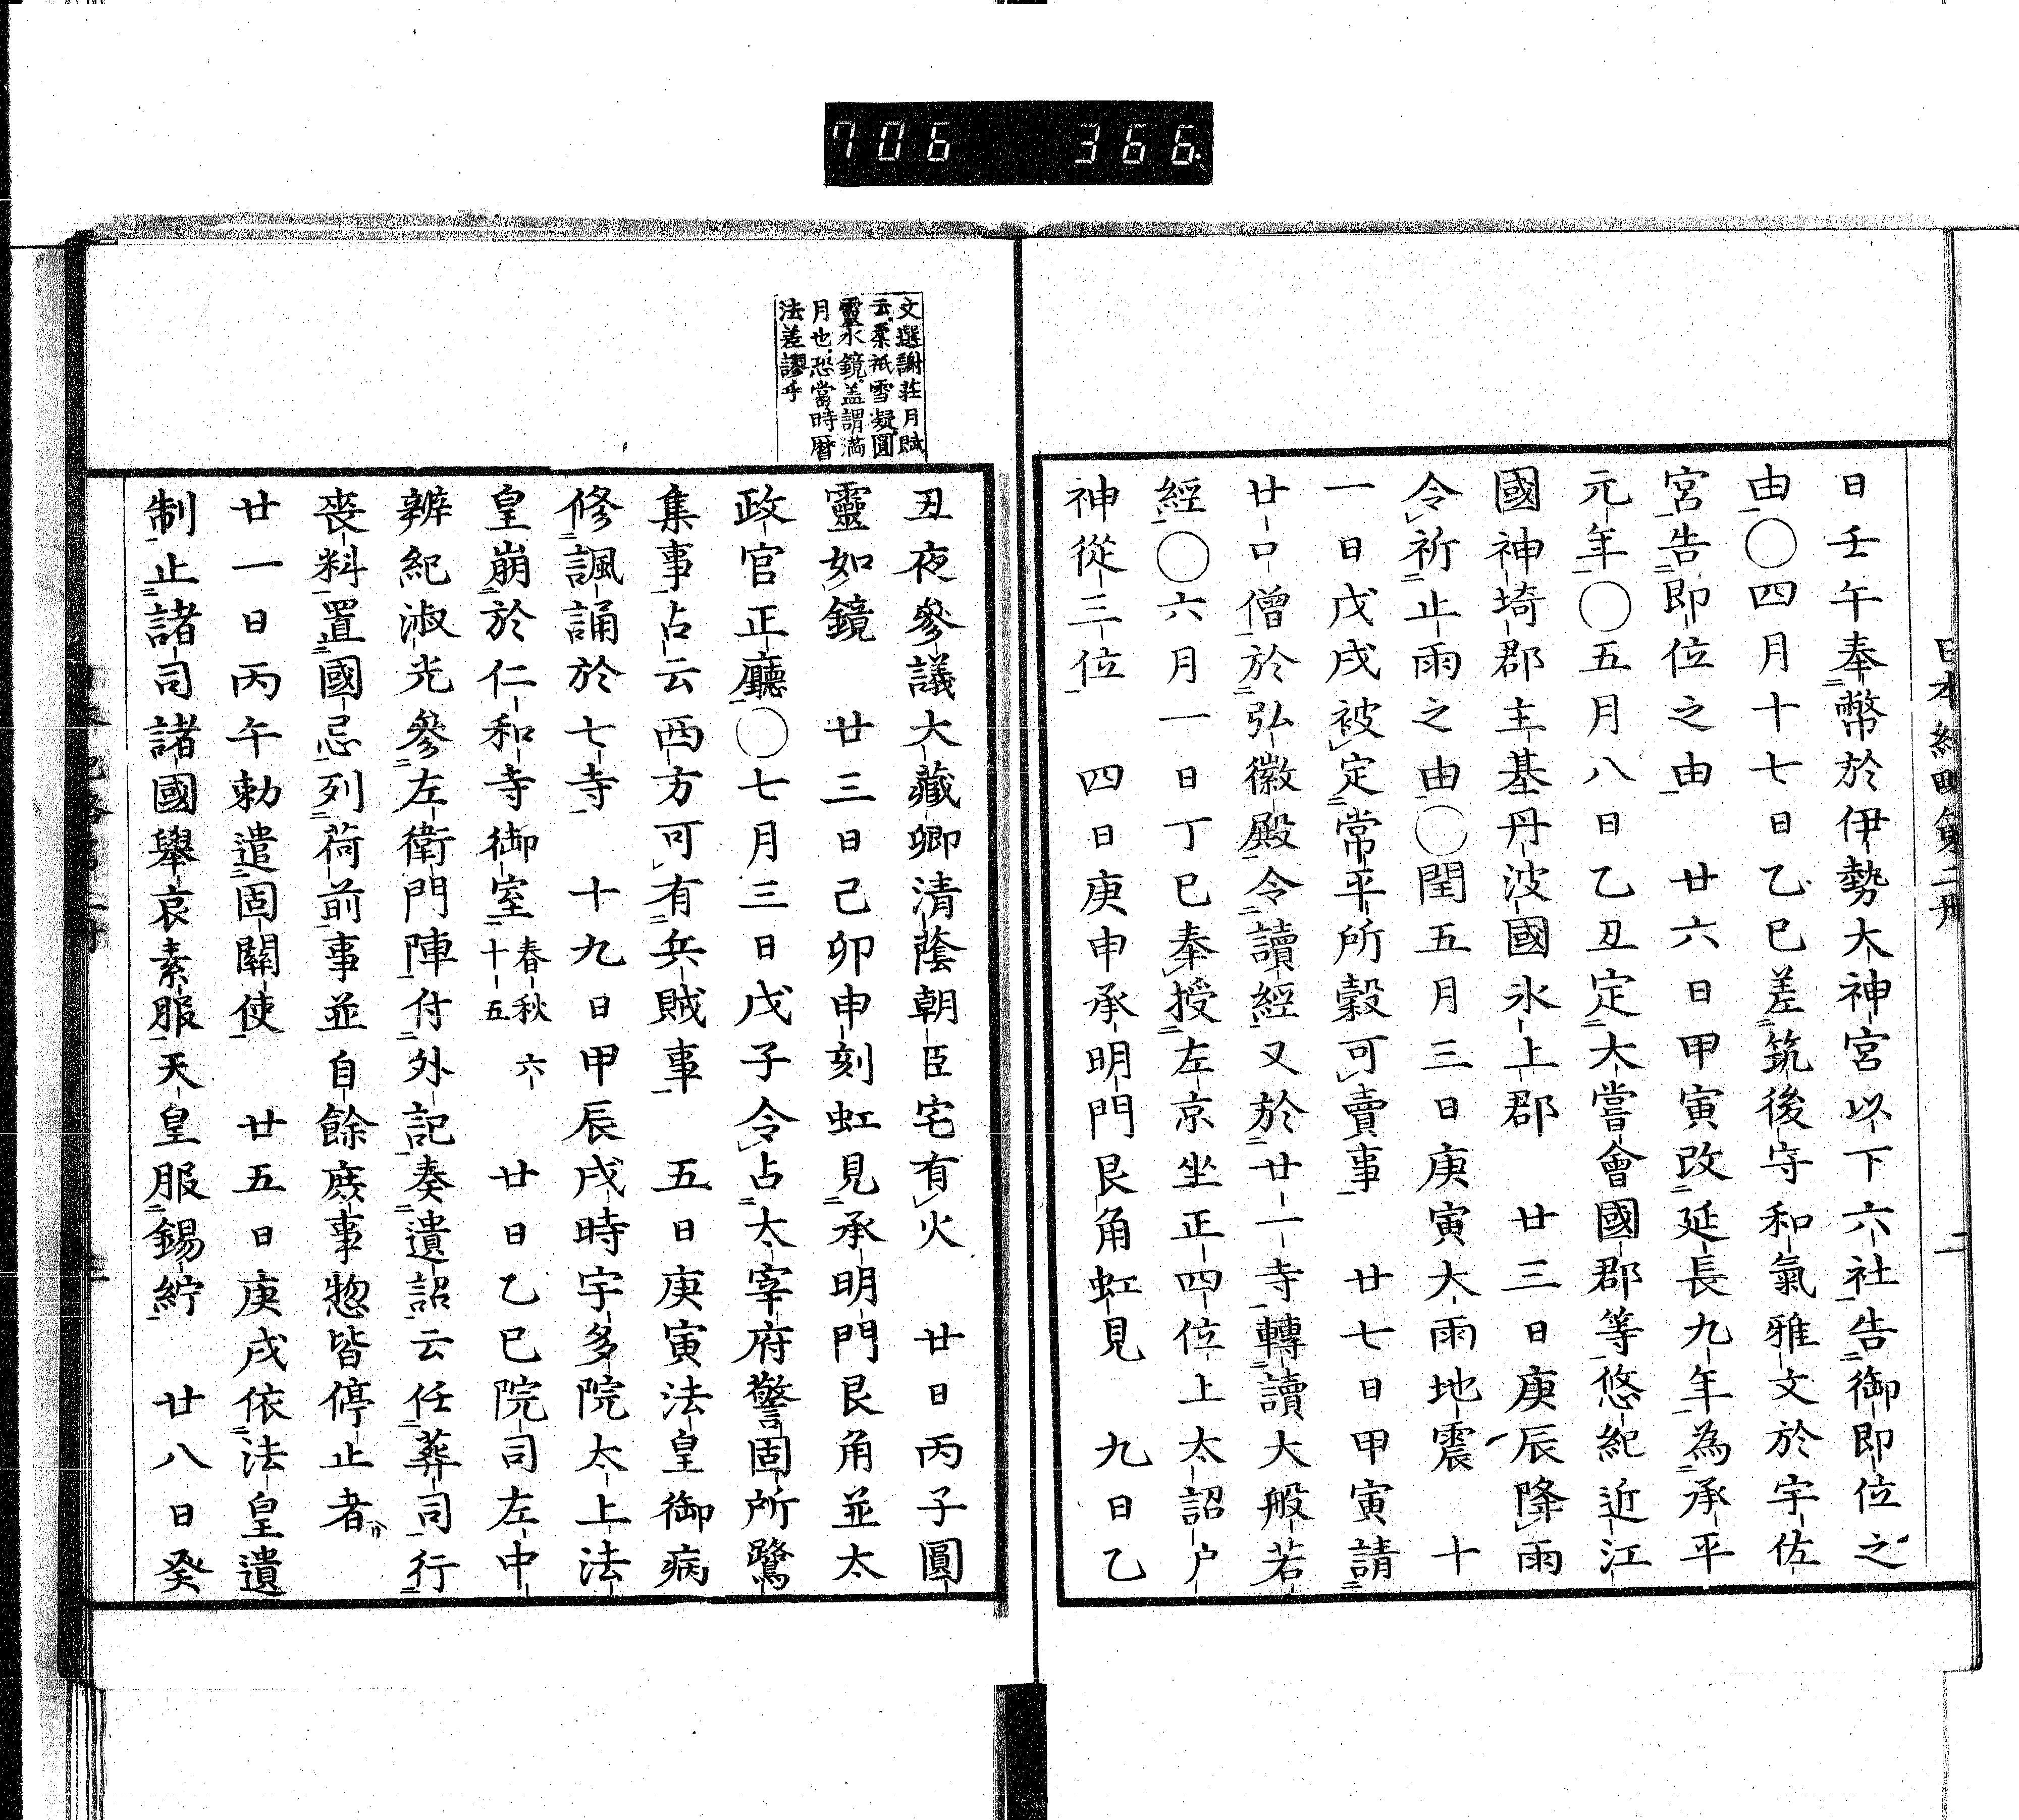 706 366
日本紀略第二册 二
日壬午奉幣於伊勢大神宮以下六社告御即位之
由○四月十七日乙巳差筑後守和氣雅文於宇佐
宮告即位之由 廿六日甲寅改延長九年為承平
元年○五月八日乙丑定大嘗會國郡等悠紀近江
國神埼郡主基丹波國氷上郡 廿三日庚辰降雨
令祈止雨之由○閏五月三日庚寅大雨地震 十
一日戊戌被定常平所穀可賣事 廿七日甲寅請
廿口僧於弘徽殿令讀經又於廿一寺轉讀大般若
經○六月一日丁巳奉授左京坐正四位上太詔戸
神從三位 四日庚申承明門艮角虹見 九日乙
文選謝莊月賦
云柔祇雪凝圓
靈水鏡盖謂満
月也恐當時暦
法差謬乎
丑夜參議大藏卿清蔭朝臣宅有火 廿日丙子圓
靈如鏡 廿三日己卯申刻虹見承明門艮角並太
政官正廳○七月三日戊子令占太宰府警固所鷺
集事占云西方可有兵賊事 五日庚寅法皇御病
修諷誦於七寺 十九日甲辰戌時宇多院太上法
皇崩於仁和寺御室春秋六十五 廿日乙巳院司左中
辨紀淑光參左衛門陣付外記奏遺詔云任葬司行
喪料置國忌列荷前事並自餘庶事惣皆停止者
廿一日丙午勅遣固關使 廿五日庚戌依法皇遺
制止諸司諸國舉哀素服天皇服錫紵 廿八日癸